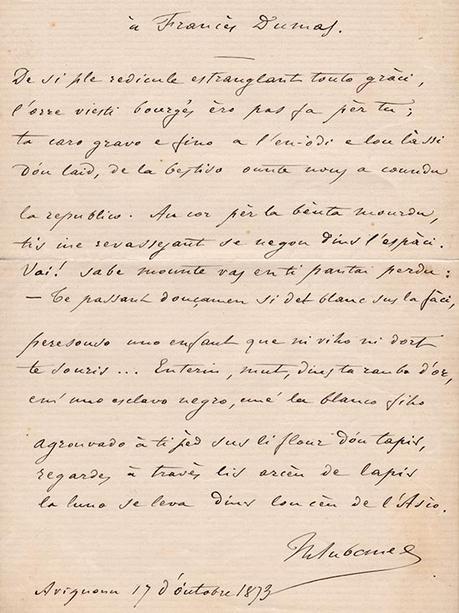 à Francés Dumas.
De si ple redicule estranglant touto gràci,
l'orre viesti bourgés èro pas fa pèr tu ;
ta caro gravo e fino a l'en-òdi e lou làssi
Dóu laid, de la bestiso ounte nous a coundu
la republico. Au cor pèr la bèuta mourdu,
tis iue revassejant se negon dins l'espàci.
Vai ! sabe mounte vas en ti pantai perdu :
— Te passant douçamen si det blanc sus la fàci,
peresouso uno enfant que ni viho ni dort
te souris ... Enterin, mut, dins ta raubo d'or,
em' uno esclavo negro, emé la blanco fiho
agrouvado à ti pèd sus li flour dóu tapis,
regardes à travès lis arcèu de lapis
la luno se leva dins lou cèu de l'Asìo.
Avignoun 17 d'óutobre 1873